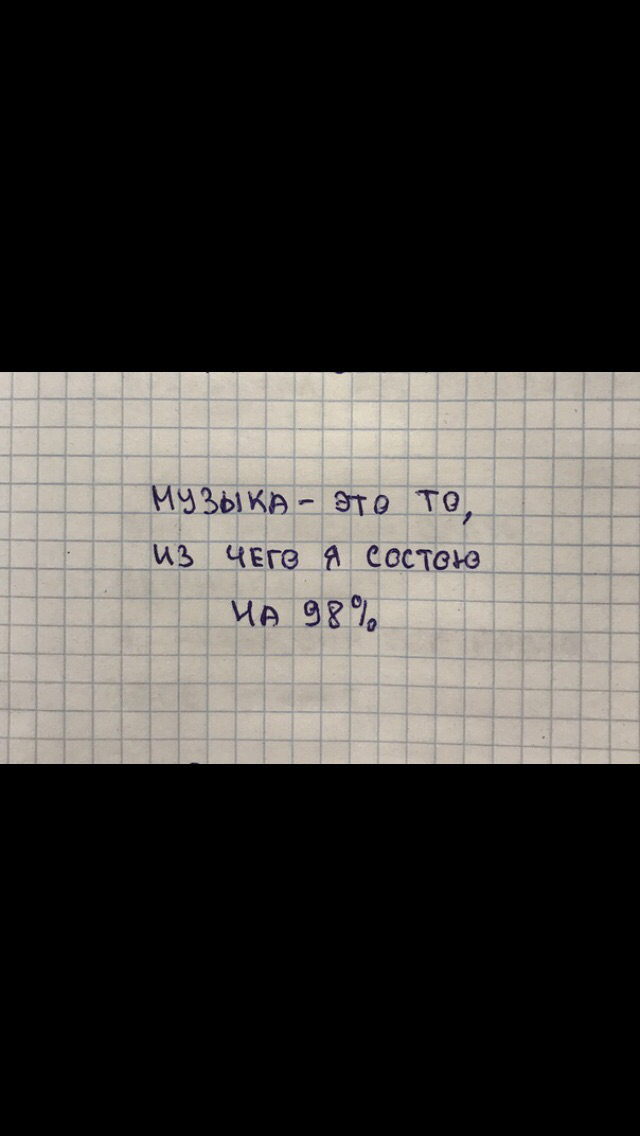 МУЗЫКА - ЭТО ТО,
ИЗ ЧЕГО Я СОСТОЮ
НА 98%